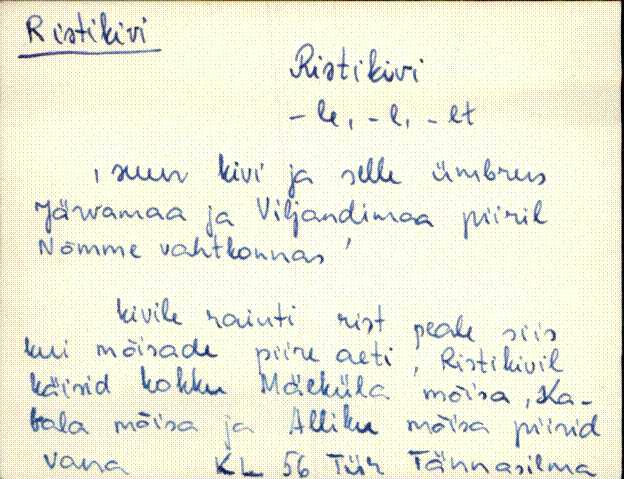 Ristikivi
Ristikivi
-le, -l, -lt
, suur kivi ja selle ümbrus
Järvamaa ja Viljandimaa piiril
Nõmme vahtkonnas '
kivile raiuti rist peale siis
kui mõisade piire aeti, Ristikivil
käisid kokku Mäeküla mõisa, Ka-
bala mõisa ja Alliku mõisa piirid
vana KL 56 Tür Tännasilma